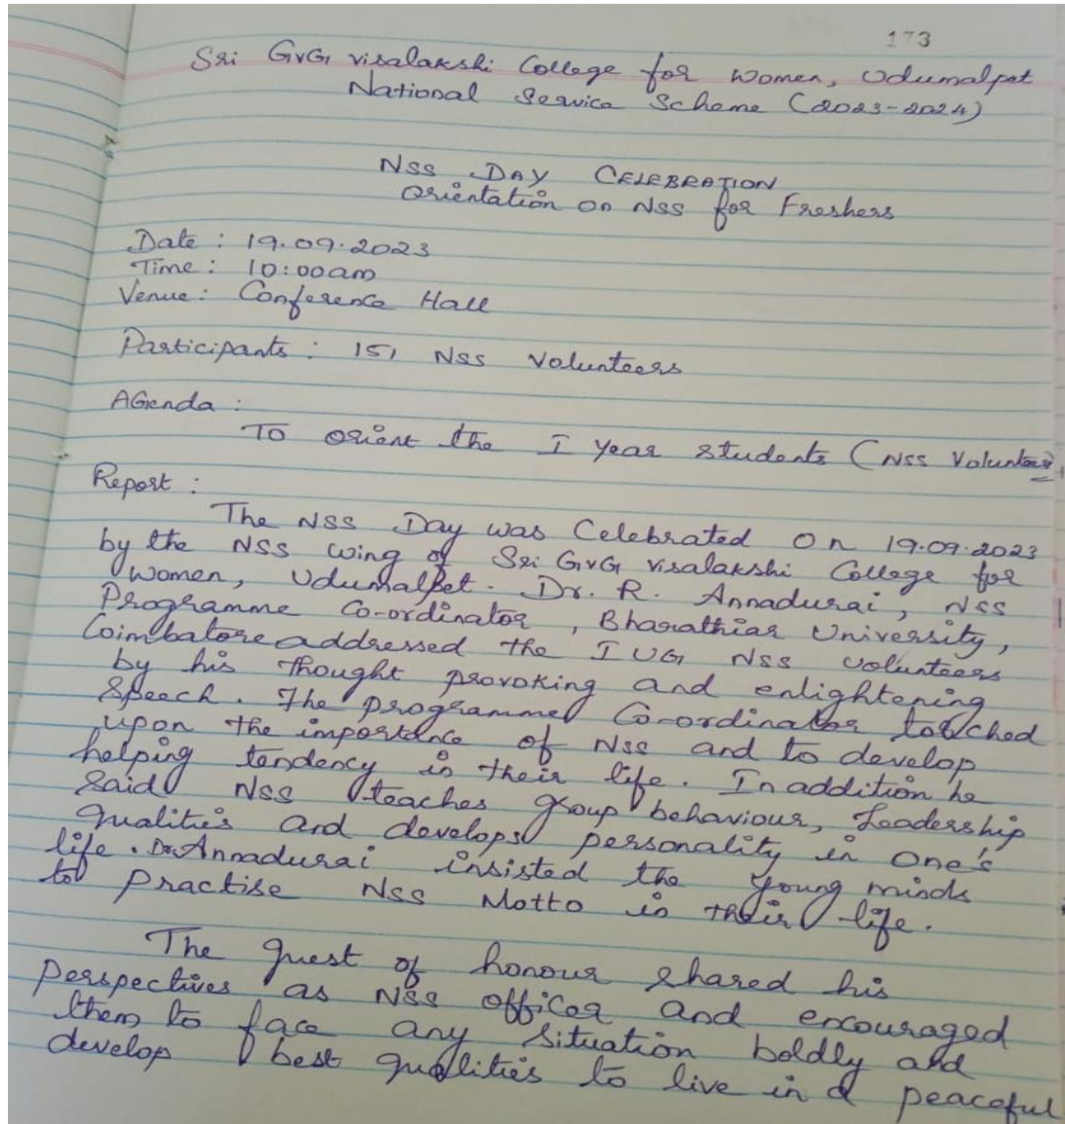 173
Sri GVG visalakshi College for Women, Udumalpet
National Service Scheme (2023-2024)
NSS DAY CELEBRATION
Orientation on NSS for Freshers
Date : 19.09.2023
Time : 10:00am
Venue : Conference Hall
Participants : 151 NSS Volunteers
AGenda :
To orient the I Year students (NSS Volunteers
Report :
The NSS Day was Celebrated on 19.09.2023
by the NSS wing of Sri GVG visalakshi College for
Women, Udumalpet. Dr. R. Annadurai, NSS
Programme Co-ordinator, Bharathiar University,
Coimbatore addressed the I UG NSS volunteers
by his thought provoking and enlightening
speech. The programme Co-ordinator touched
upon the importance of NSS and to develop
helping tendency in their life. In addition he
said NSS teaches group behaviour, Leadership
qualities and develops personality in one's
life. Dr. Annadurai insisted the young minds
to practise NSS Motto in their life.
The guest of honour shared his
perspectives as NSS officer and encouraged
them to face any situation boldly and
develop best qualities to live in a peaceful